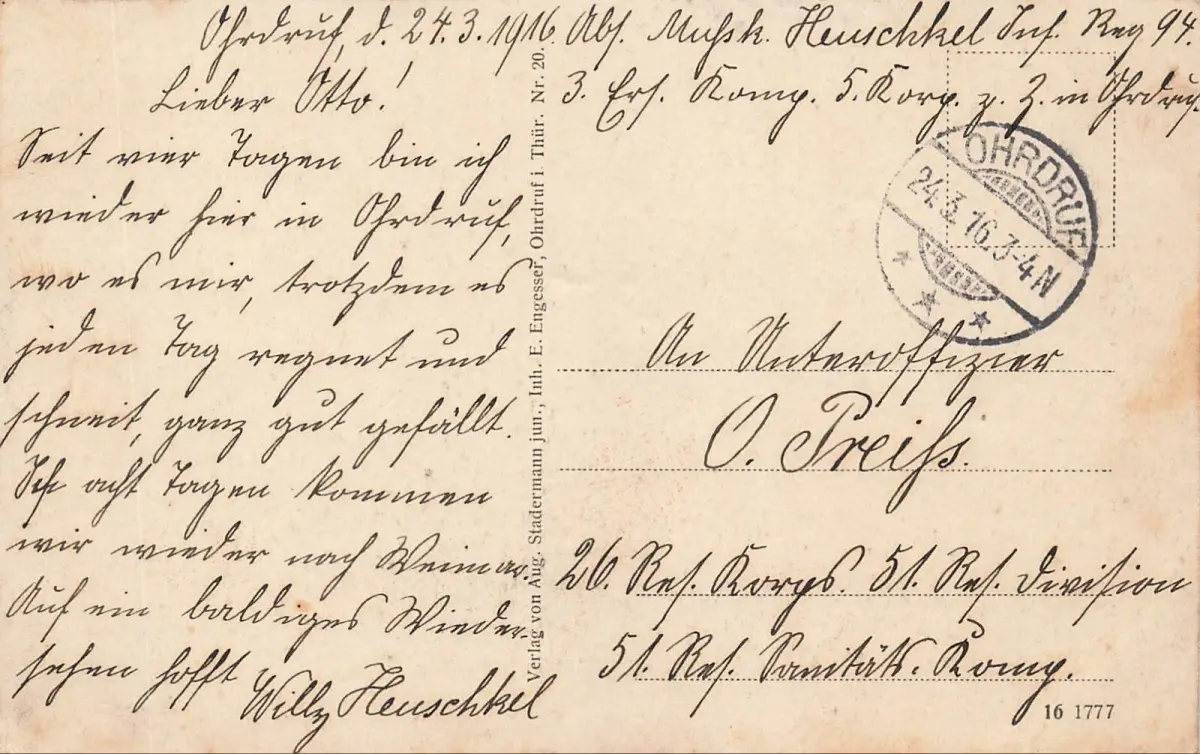 Ohrdruf, d. 24.3.1916.
Lieber Otto!
Seit vier Tagen bin ich
wieder hier in Ohrdruf,
wo es mir, trotzdem es
jeden Tag regnet und
schneit, ganz gut gefällt.
acht Tagen kommen
wir wieder nach Weimar.
Auf ein baldiges Wieder-
sehen hofft
Willy Heuschkel
Verlag von Aug. Stadermann jun., Inh. E. Engesser, Ohrdruf i. Thür. Nr. 20.
Abs. Musk. Heuschkel Inf. Reg 94.
3. Ers. Komp. 5. Korp. z. Z. in Ohrdruf.
OHRDRUF
24.3.16.3-4N
An Unteroffizier
O. Preiss.
26. Res. Korps. 51. Res. Division
51. Res. Sanitäts. Komp.
16 1777